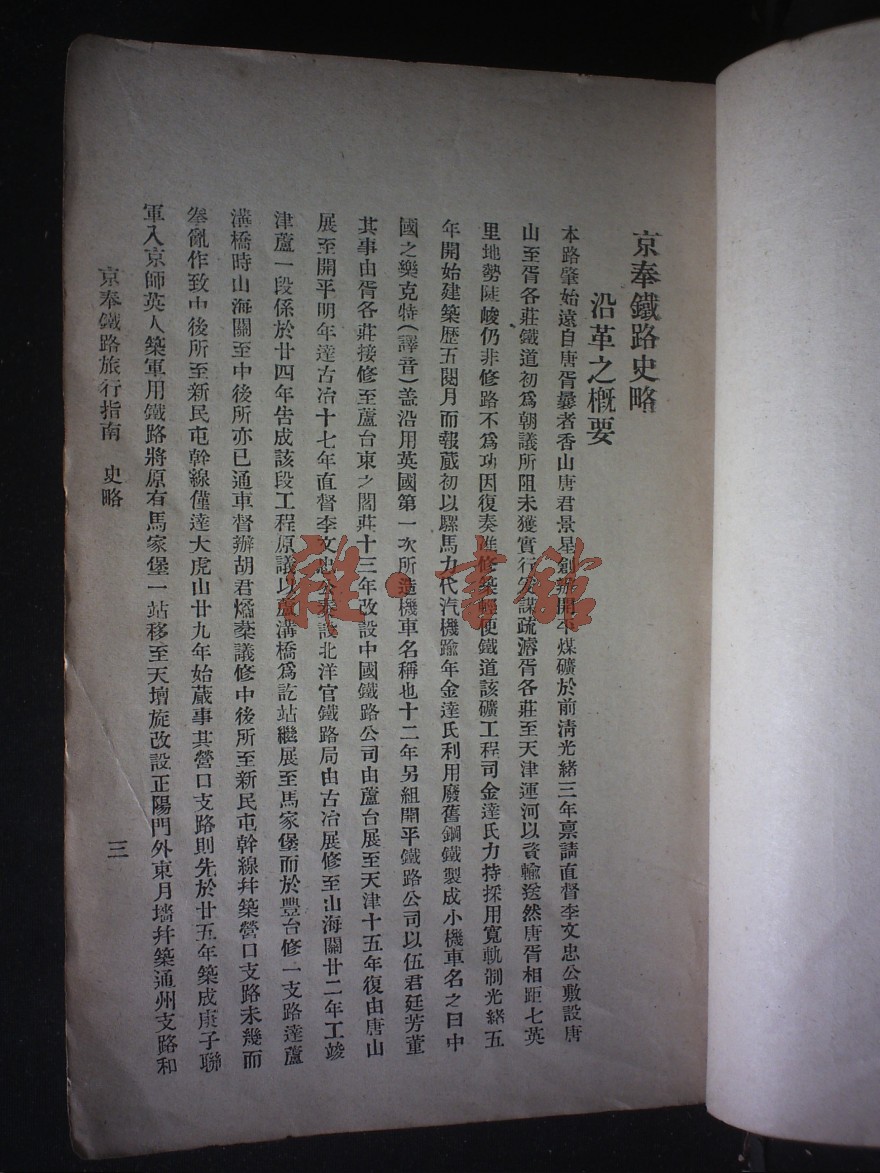 京奉鐵路史略
沿革之概要
本路肇始遠自唐胥曩者香山唐君景星創辦開平煤礦於前清光緒三年禀請直督李文忠公敷設唐
山至胥各莊鐵道初爲朝議所阻未獲實行安謀疏濬胥各莊至天津運河以資輸送然唐胥相距七英
里地勢陡峻仍非修路不爲功因復奏准修築輕便鐵道該礦工程司金達氏力持採用寬軌制光緒五
年開始建築歷五閱月而報蕆初以騾馬力代汽機踰年金達氏利用廢舊鋼鐵製成小機車名之曰中
國之樂克特(譯音)盖沿用英國第一次所造機車名稱也十二年另組開平鐵路公司以伍君廷芳董
其事由胥各莊接修至蘆台東之閻莊十三年改設中國鐵路公司由蘆台展至天津十五年復由唐山
展至開平明年達古冶十七年直督李文忠公奏設北洋官鐵路局由古冶展修至山海關廿二年工竣
津蘆一段係於廿四年告成該段工程原議以蘆溝橋爲訖站繼展至馬家堡而於豐台修一支路達蘆
溝橋時山海關至中後所亦已通車督辦胡君燏棻議修中後所至新民屯幹線幷築營口支路未幾而
拳亂作致中後所至新民屯幹線僅達大虎山廿九年始蕆事其營口支路則先於廿五年築成庚子聯
軍入京師英人築軍用鐵路將原有馬家堡一站移至天壇旋改設正陽門外東月墻幷築通州支路和
京奉鐵路旅行指南 史略
三
雜·書館